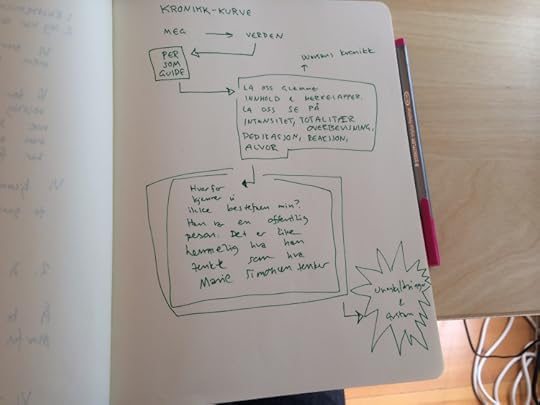 KRONIKK-KURVE
MEG → VERDEN
PER
SOM
GUIDE
kronikk
LA OSS GLEMME
INNHOLD & MERKELAPPER.
LA OSS SE PÅ
INTENSITET, TOTALITÆR
OVERBEVISNING,
DEDIKASJON, REAKSJON,
ALVOR
Hvorfor
kjenner vi
ikke bestefaren min?
Han er en offentlig
person. Det er like
hemmelig hva han
tenkte som hva
Marie Simonsen tenker
&